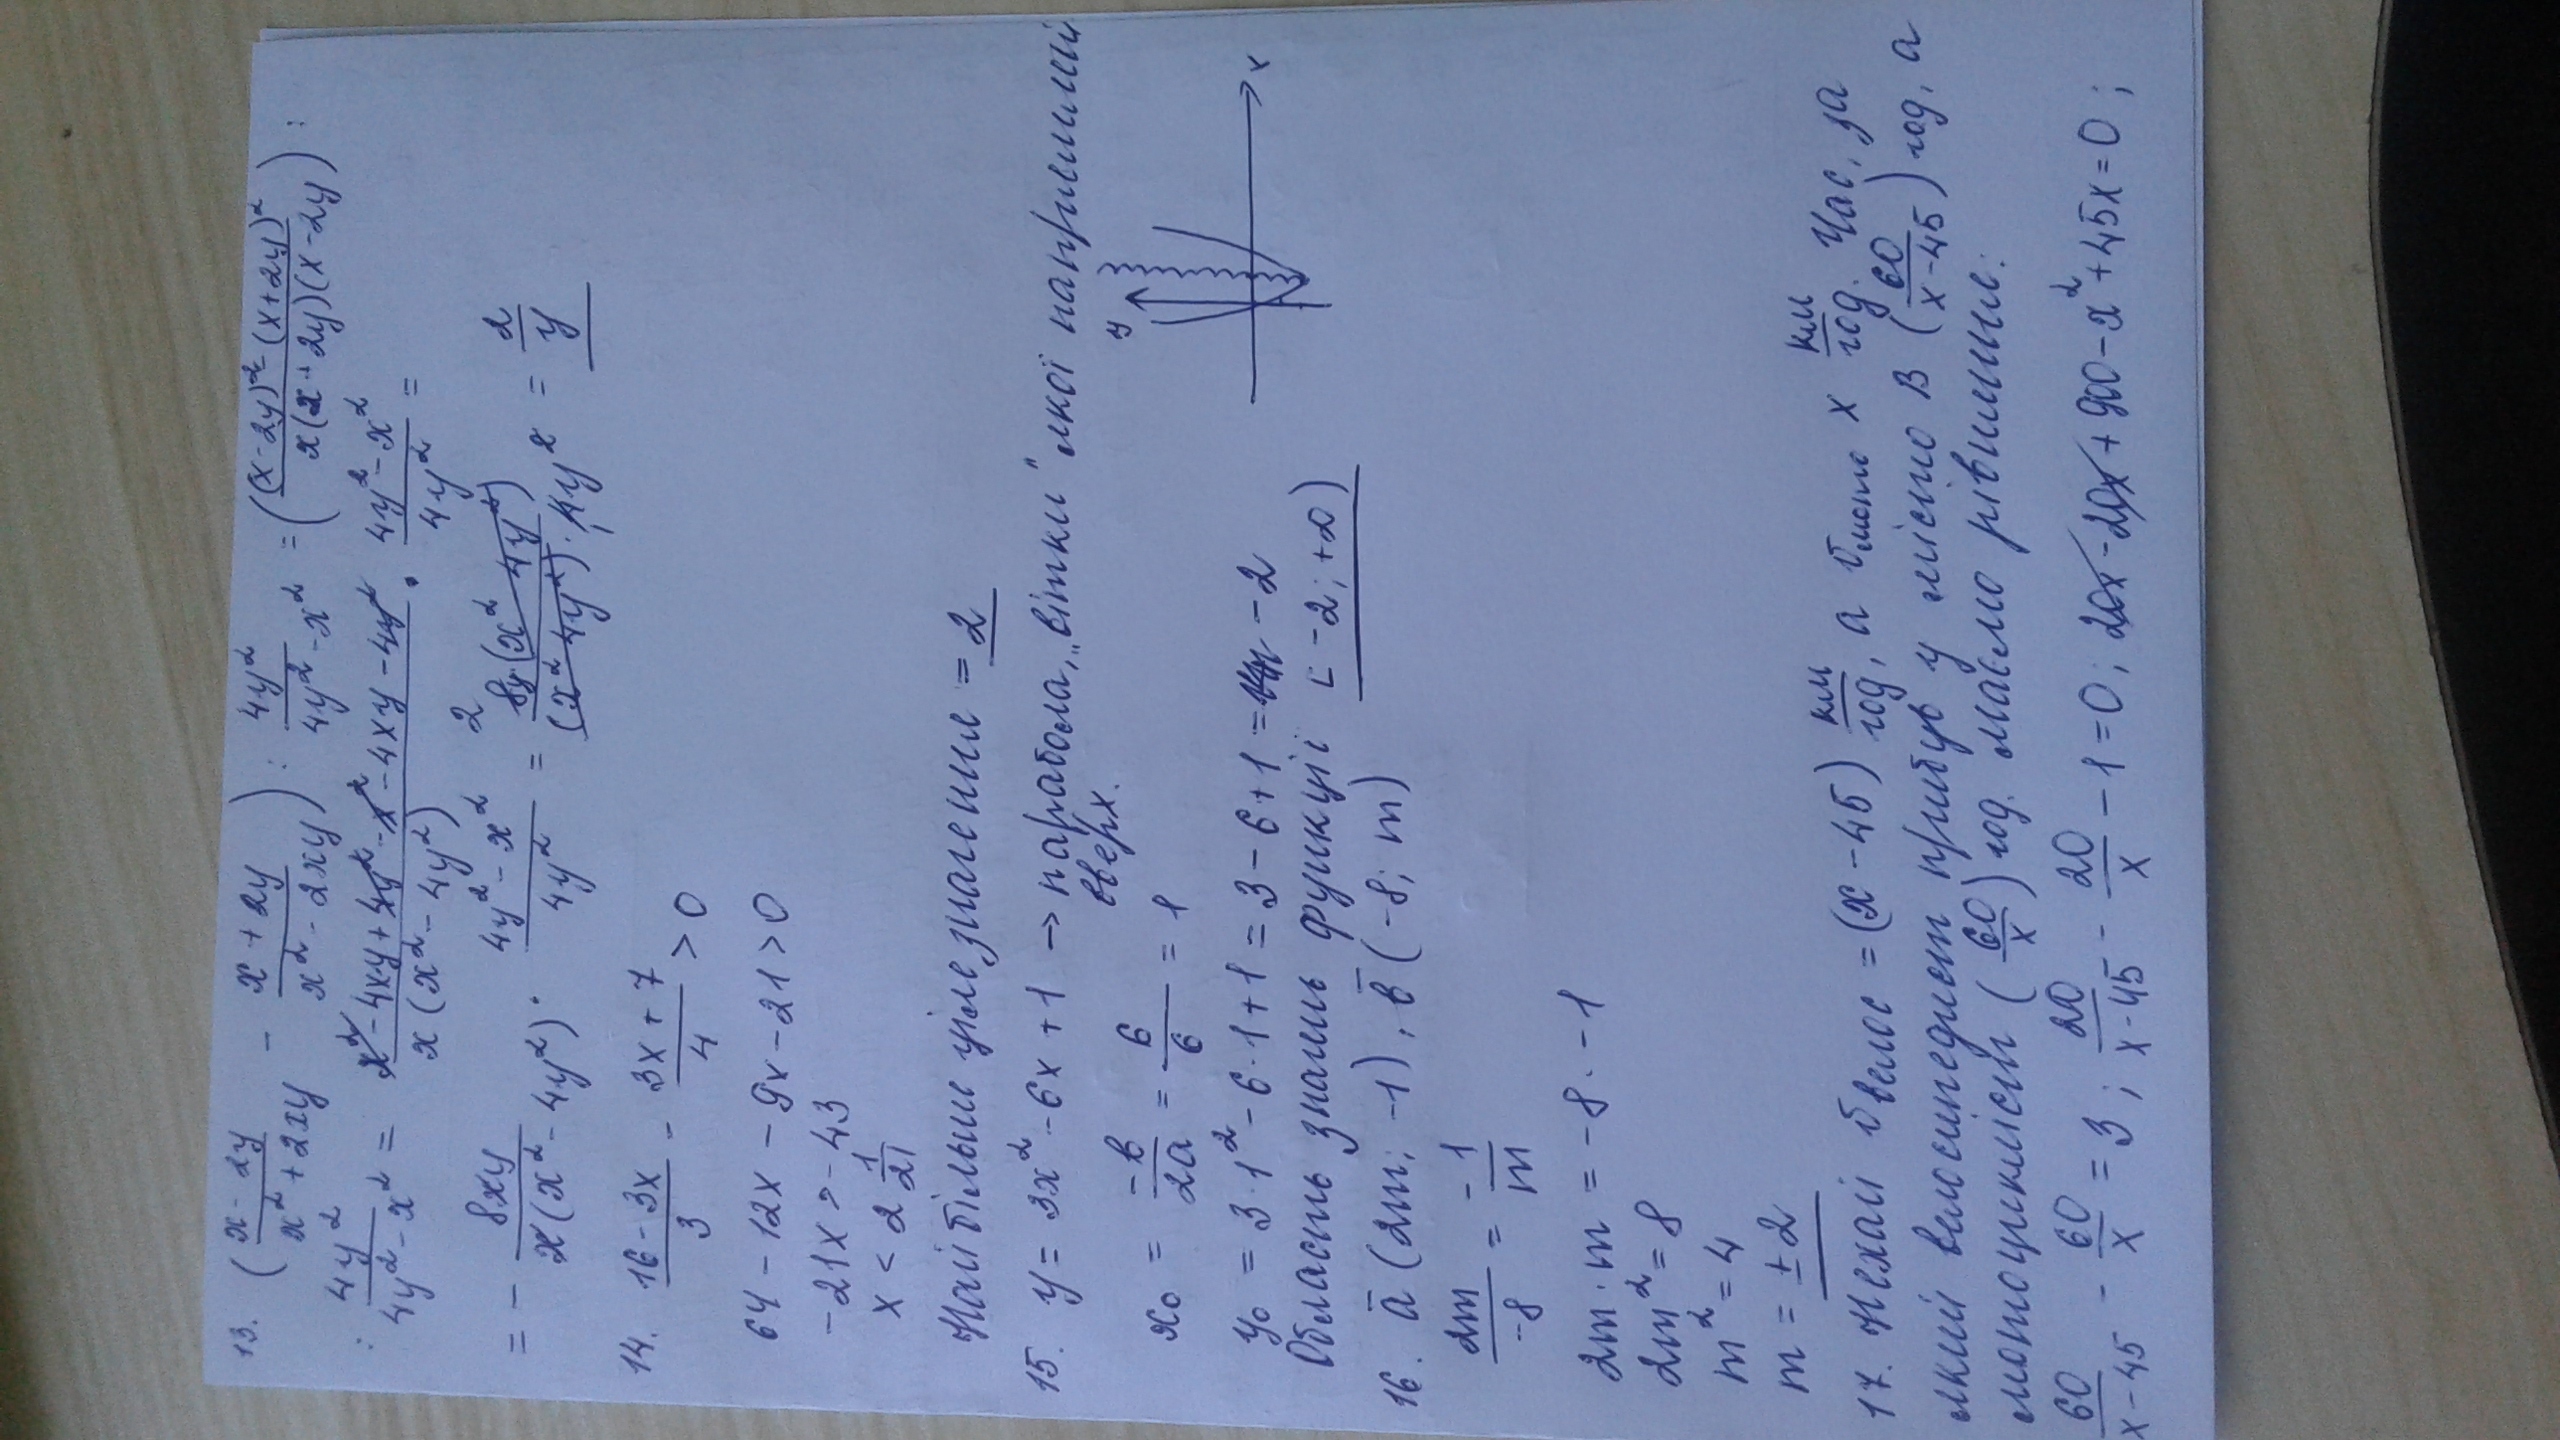 13. ((x-2y)/(x²+2xy) - (x+2y)/(x²-2xy)) : 4y²/(4y²-x²) = ((x-2y)²-(x+2y)²)/(x(x+2y)(x-2y)) :
: 4y²/(4y²-x²) = (x²-4xy+4y²-x²-4xy-4y²)/(x(x²-4y²)) · (4y²-x²)/4y² =
= - 8xy/(x(x²-4y²)) · (4y²-x²)/4y² = 8y(x²-4y²)/((x²-4y²)·4y²) = 2/y
14. (16-3x)/3 - (3x+7)/4 > 0
64-12x-9x-21>0
-21x>-43
x < 2 1/21
Найбільше ціле значення = 2
15. y = 3x²-6x+1 → парабола, „вітки" якої напрямлені
вверх.
x₀ = -b/2a = 6/6 = 1
y
x
y₀ = 3·1²-6·1+1 = 3-6+1 = -2
Область значень функції [-2; +∞)
16. a̅ (2m; -1), b̅ (-8; m)
2m/-8 = -1/m
2m·m = -8·-1
2m² = 8
m² = 4
m = ±2
17. Нехай Vвелос = (x-45) км/год, а Vмото x км/год. Час, за
який велосипедист прибув у місто B (60/(x-45)) год, а
мотоцикліст (60/x) год. маємо рівняння:
60/(x-45) - 60/x = 3; 20/(x-45) - 20/x - 1 = 0; 20x-20x+900-x²+45x=0;